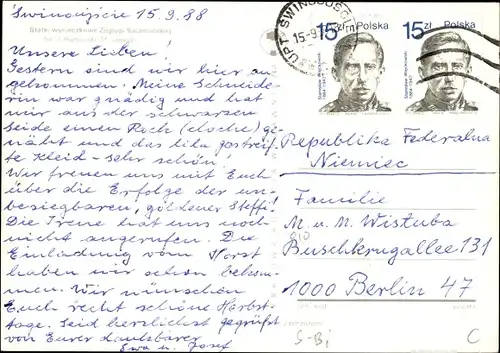 Świnoujście 15.9.88
Statki wycieczkowe Żeglugi Szczecińskiej
Unsere Lieben!
Gestern sind wir hier an-
gekommen. Meine Schneide-
rin war gnädig und hat
mir aus der schwarzen
Seide einen Rock (cloche) ge-
näht und das lila gestreif-
te Kleid - sehr schön!
Wir freuen uns mit Euch
über die Erfolge der un-
besiegbaren, goldener Steffi!
Die Irene hat uns noch
nicht angerufen. Die
Einladung vom Horst
haben wir schon bekom-
men. Wir wünschen
Euch recht schöne Herbst-
tage. Seid herzlichst gegrüßt
von Eurer dankbaren
Ewa u. Josef
UPT ŚWINOUJŚCIE
15-9
15 zł POLSKA
15 zł POLSKA
Republika Federalna
Niemiec
Familie
M. u. M. Wistuba
Buschkrugallee 131
1000 Berlin 47
S-Bi
C